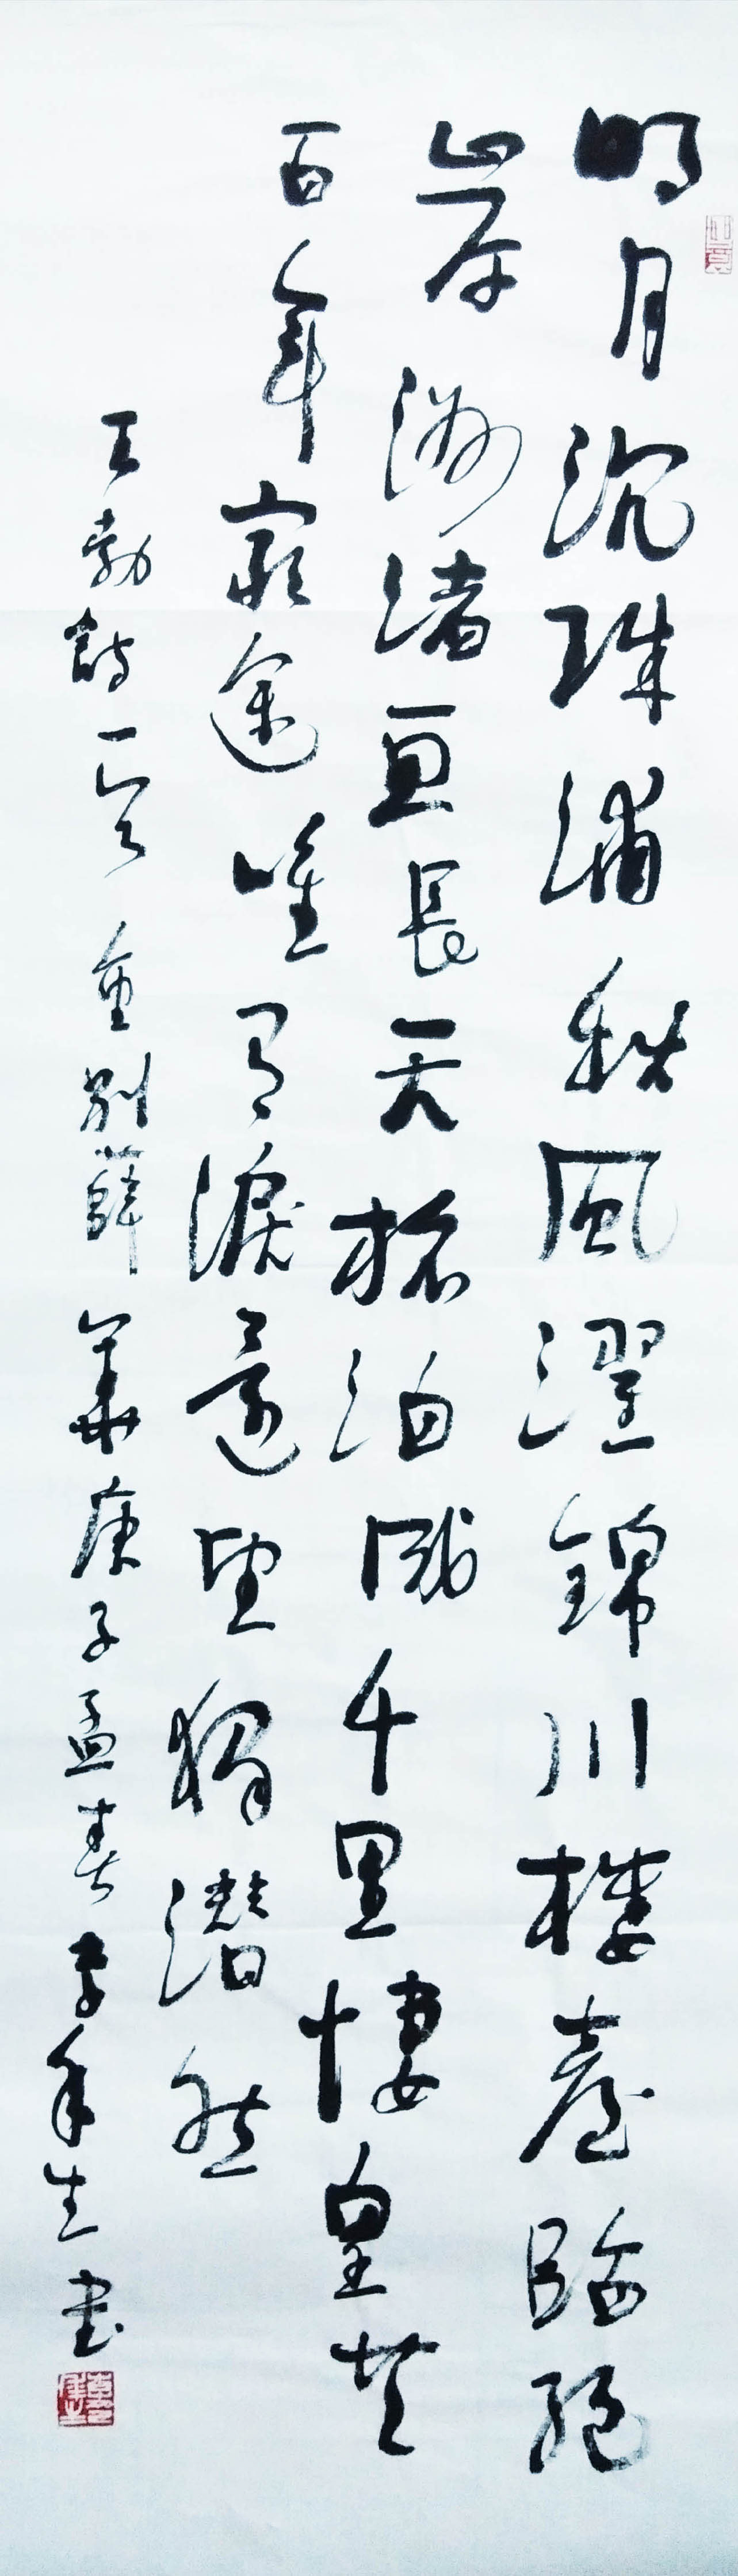 明月沉珠浦秋風濯錦川樓臺臨絕
岸洲渚亘長天旅泊成千里悽皇共
百年窮途唯有淚還望獨潸然
王勃詩一首重別薛華庚子孟春李年生書